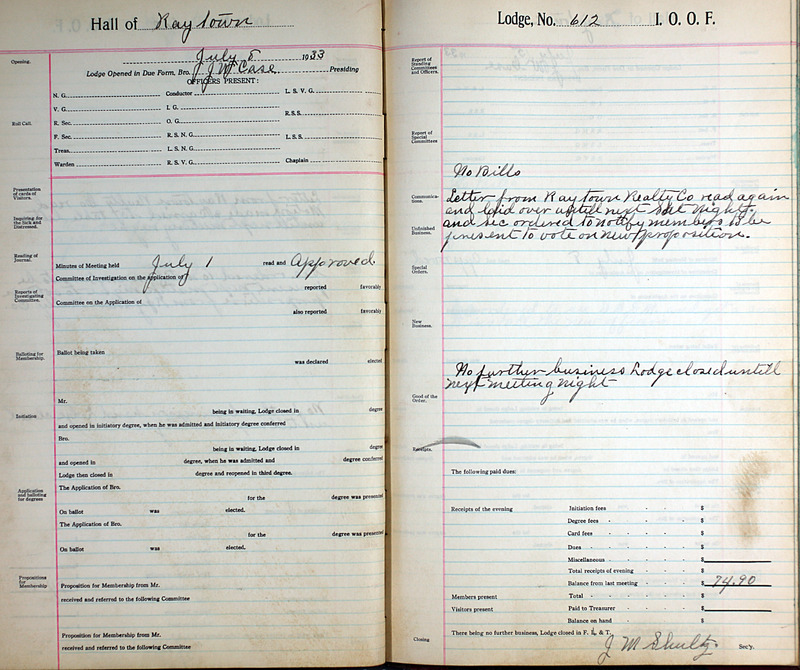 Hall of Raytown
Opening.
July 8 1933
Lodge Opened in Due Form, Bro. J M Case Presiding
OFFICERS PRESENT:
N. G. Conductor L. S. V. G.
V. G. I. G.
Roll Call. R. Sec. O. G. R.S.S.
F. Sec. R. S. N. G. L.S.S.
Treas. L. S. N. G.
Warden R. S. V. G. Chaplain
Presentation of cards of Visitors.
Inquiring for the Sick and Distressed.
Reading of Journal.
Minutes of Meeting held July 1 read and Approved
Committee of Investigation on the Application of
Reports of Investigating Committee.
reported favorably
Committee on the Application of
also reported favorably
Balloting for Membership.
Ballot being taken
was declared elected
Mr.
Initiation
being in waiting, Lodge closed in degree
and opened in initiatory degree, when he was admitted and initiatory degree conferred
Bro.
being in waiting, Lodge closed in degree
and opened in degree, when he was admitted and degree conferred
Lodge then closed in degree and reopened in third degree.
Application and balloting for degrees
The Application of Bro.
for the degree was presented
On ballot was elected.
The Application of Bro.
for the degree was presented
On ballot was elected.
Propositions for Membership
Proposition for Membership from Mr.
received and referred to the following Committee
Proposition for Membership from Mr.
received and referred to the following Committee
Lodge, No. 612 I. O. O. F.
Report of Standing Committees and Officers.
Report of Special Committees
No Bills
Communications.
Letter from Raytown Realty Co read again
and laid over untill next Sat Night.
Unfinished Business.
and sec ordered to notify members to be
present to vote on new proposition.
Special Orders.
New Business.
No further business Lodge closed untill
next meeting night
Good of the Order.
Receipts.
The following paid dues:
Receipts of the evening Initiation fees $
Degree fees $
Card fees $
Dues $
Miscellaneous $
Total receipts of evening $
Balance from last meeting $ 74.90
Members present Total $
Visitors present Paid to Treasurer $
Balance on hand $
There being no further business, Lodge closed in F. L. & T.
Closing J M Shultz Sec'y.